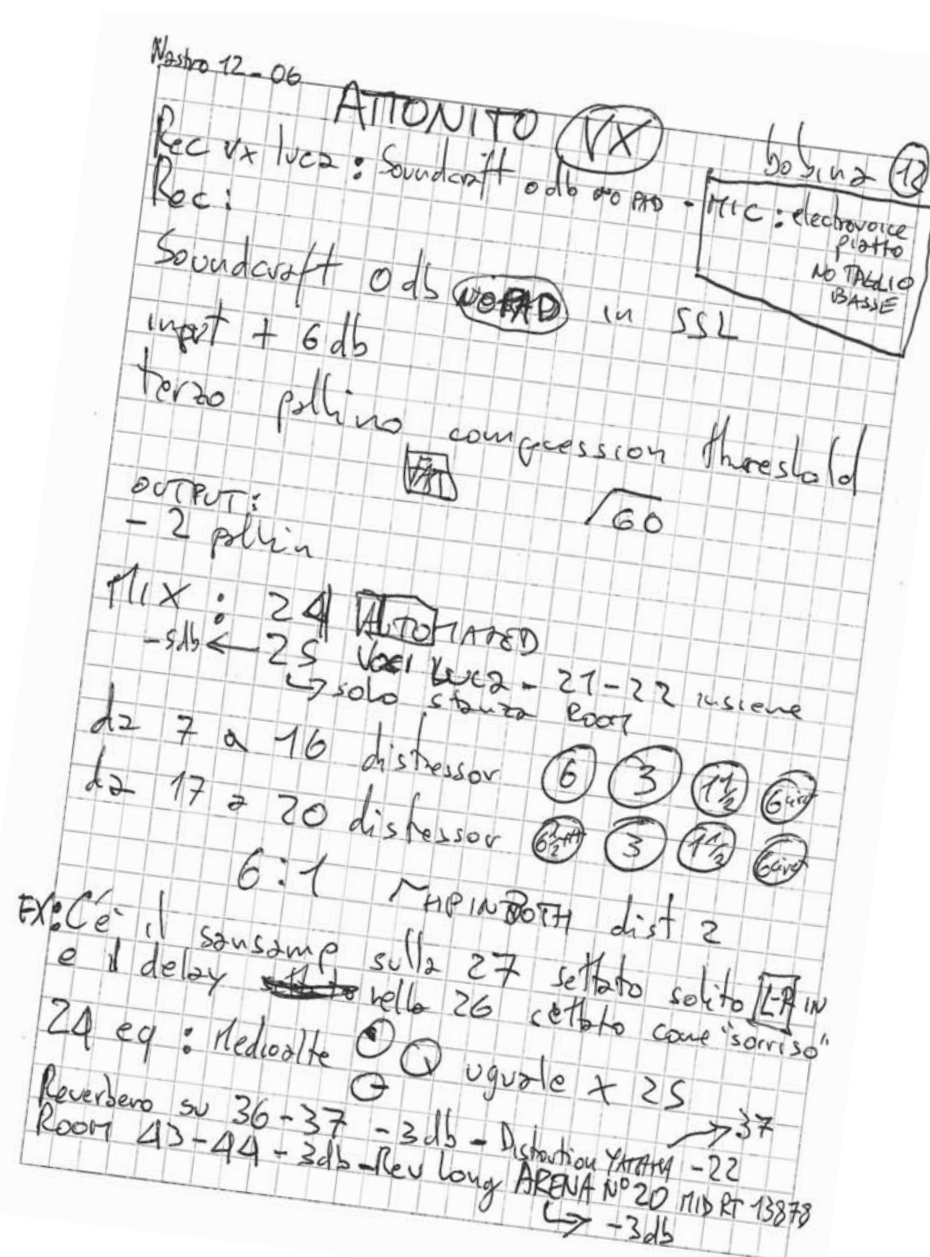 Nastro 12-06
ATTONITO VX
bobina 12
Rec vx luca : Soundcraft 0 db no PAD - MIC : electrovoice
piatto
NO TAGLIO
BASSE
Rec :
Soundcraft 0 db NO PAD in SSL
input + 6 db
terzo pallino compression threshold
60
OUTPUT :
- 2 pallin
MIX : 24 AUTOMATED
-5db ← 25 Voci Luca - 21-22 insieme
↳ solo stanza ROOM
da 7 a 16 distressor 6 3 1 1/2
da 17 a 20 distressor 6 1/2 3 1 1/2
6:1 HP IN BOTH dist 2
EX: C'é il sansamp sulla 27 settato solito L-R IN
e il delay nella 26 settato come "sorriso"
24 eq : Medioalte uguale x 25
Reverbero su 36-37 -3db - Distortion YAMAHA -22 → 37
Room 43-44 -3db - Rev long ARENA N°20 MID RT 13878
↳ -3db